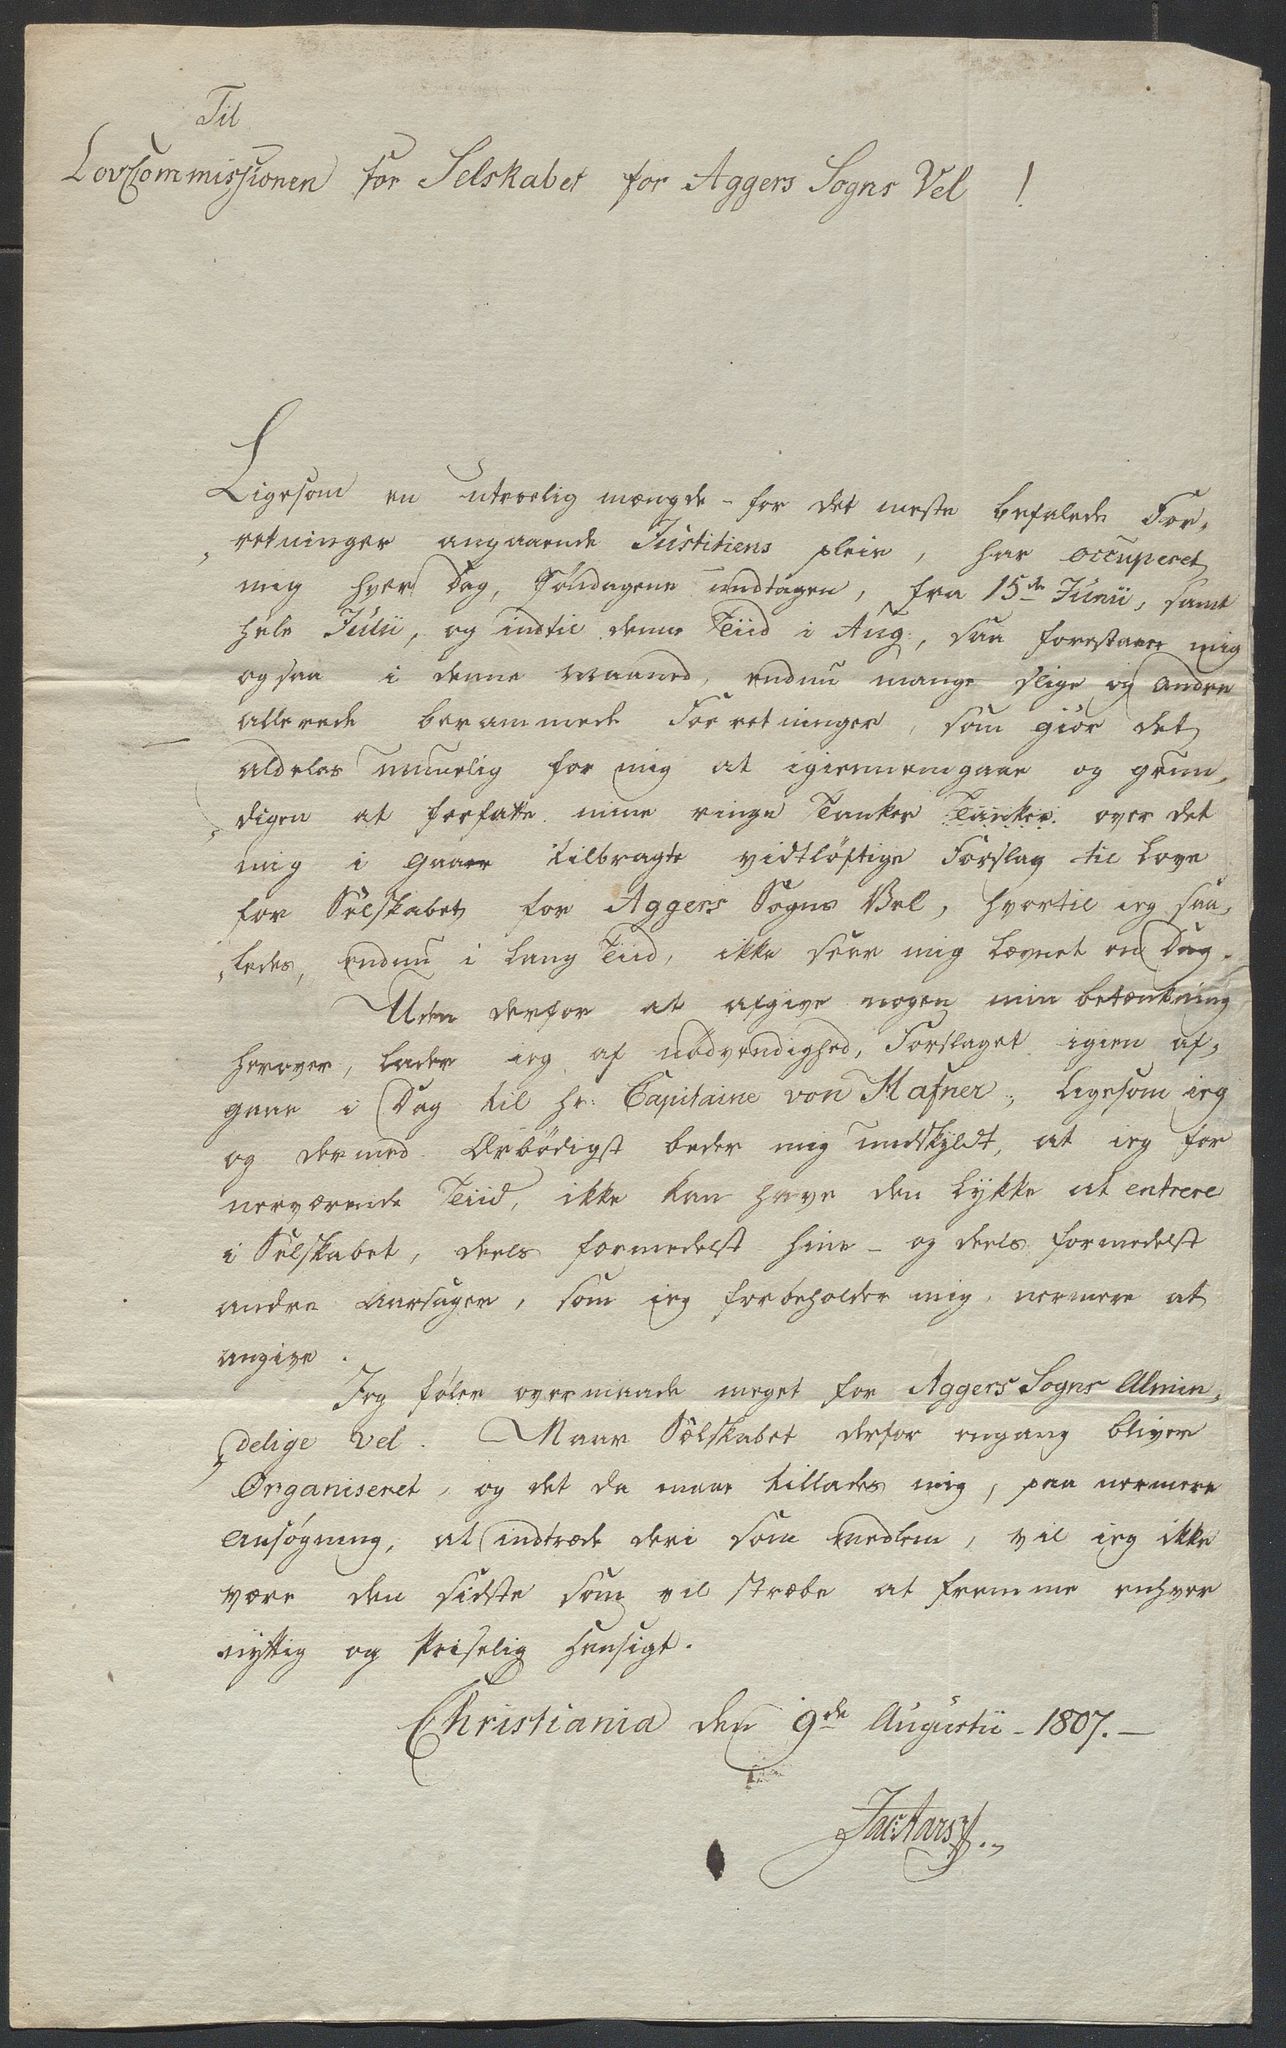 Til
LovCommissionen for Selskabet for Aggers Sogns Vel !
Ligesom en utroelig mængde - for det meste befalede For-
„retninger angaaende Justitiens pleie, har occuperet
mig hver Dag, Søndagene undtagen, fra 15de Junii, samt
hele Julii, og indtil denne Tiid i Aug:, saa forestaaer mig
ogsaa i denne Maaned, endnu mange slige og andre
allerede berammede Forretninger, som giør det
aldeles umuelig for mig at igiennemgaae og grun-
„digen at forfatte mine ringe Tanker Tanker over det
mig i Gaar tilbragte vidtløftige Forslag til Love
for Selskabet for Aggers Sogns Vel, hvortil ieg saa-
„ledes, endnu i lang Tiid, ikke seer mig levnet en Dag.
Uden derfor at afgive nogen min betænkning
herover, lader ieg af nødvendighed, Forslaget igien af-
gaae i Dag til Hr: Capitaine von Hafner, ligesom ieg
og dermed Ærbødigst beder mig undskyldt, at ieg for
nerværende Tiid, ikke kan have den Lykke at entrere
i Selskabet, deels formedelst hine - og deels formedelst
andre Aarsager, som ieg forbeholder mig, nermere at
angive.
Jeg føler overmaade meget for Aggers Sogns Almin-
„delige Vel. Naar Selskabet derfor engang bliver
Organiseret, og det da maae tillades mig, paa nermere
Ansøgning, at indtræde deri som Medlem, vil ieg ikke
være den sidste som vil stræbe at fremme enhver
nyttig og Priselig Hensigt.
Christiania den 9de Augustii - 1807. -
Jac: Aars